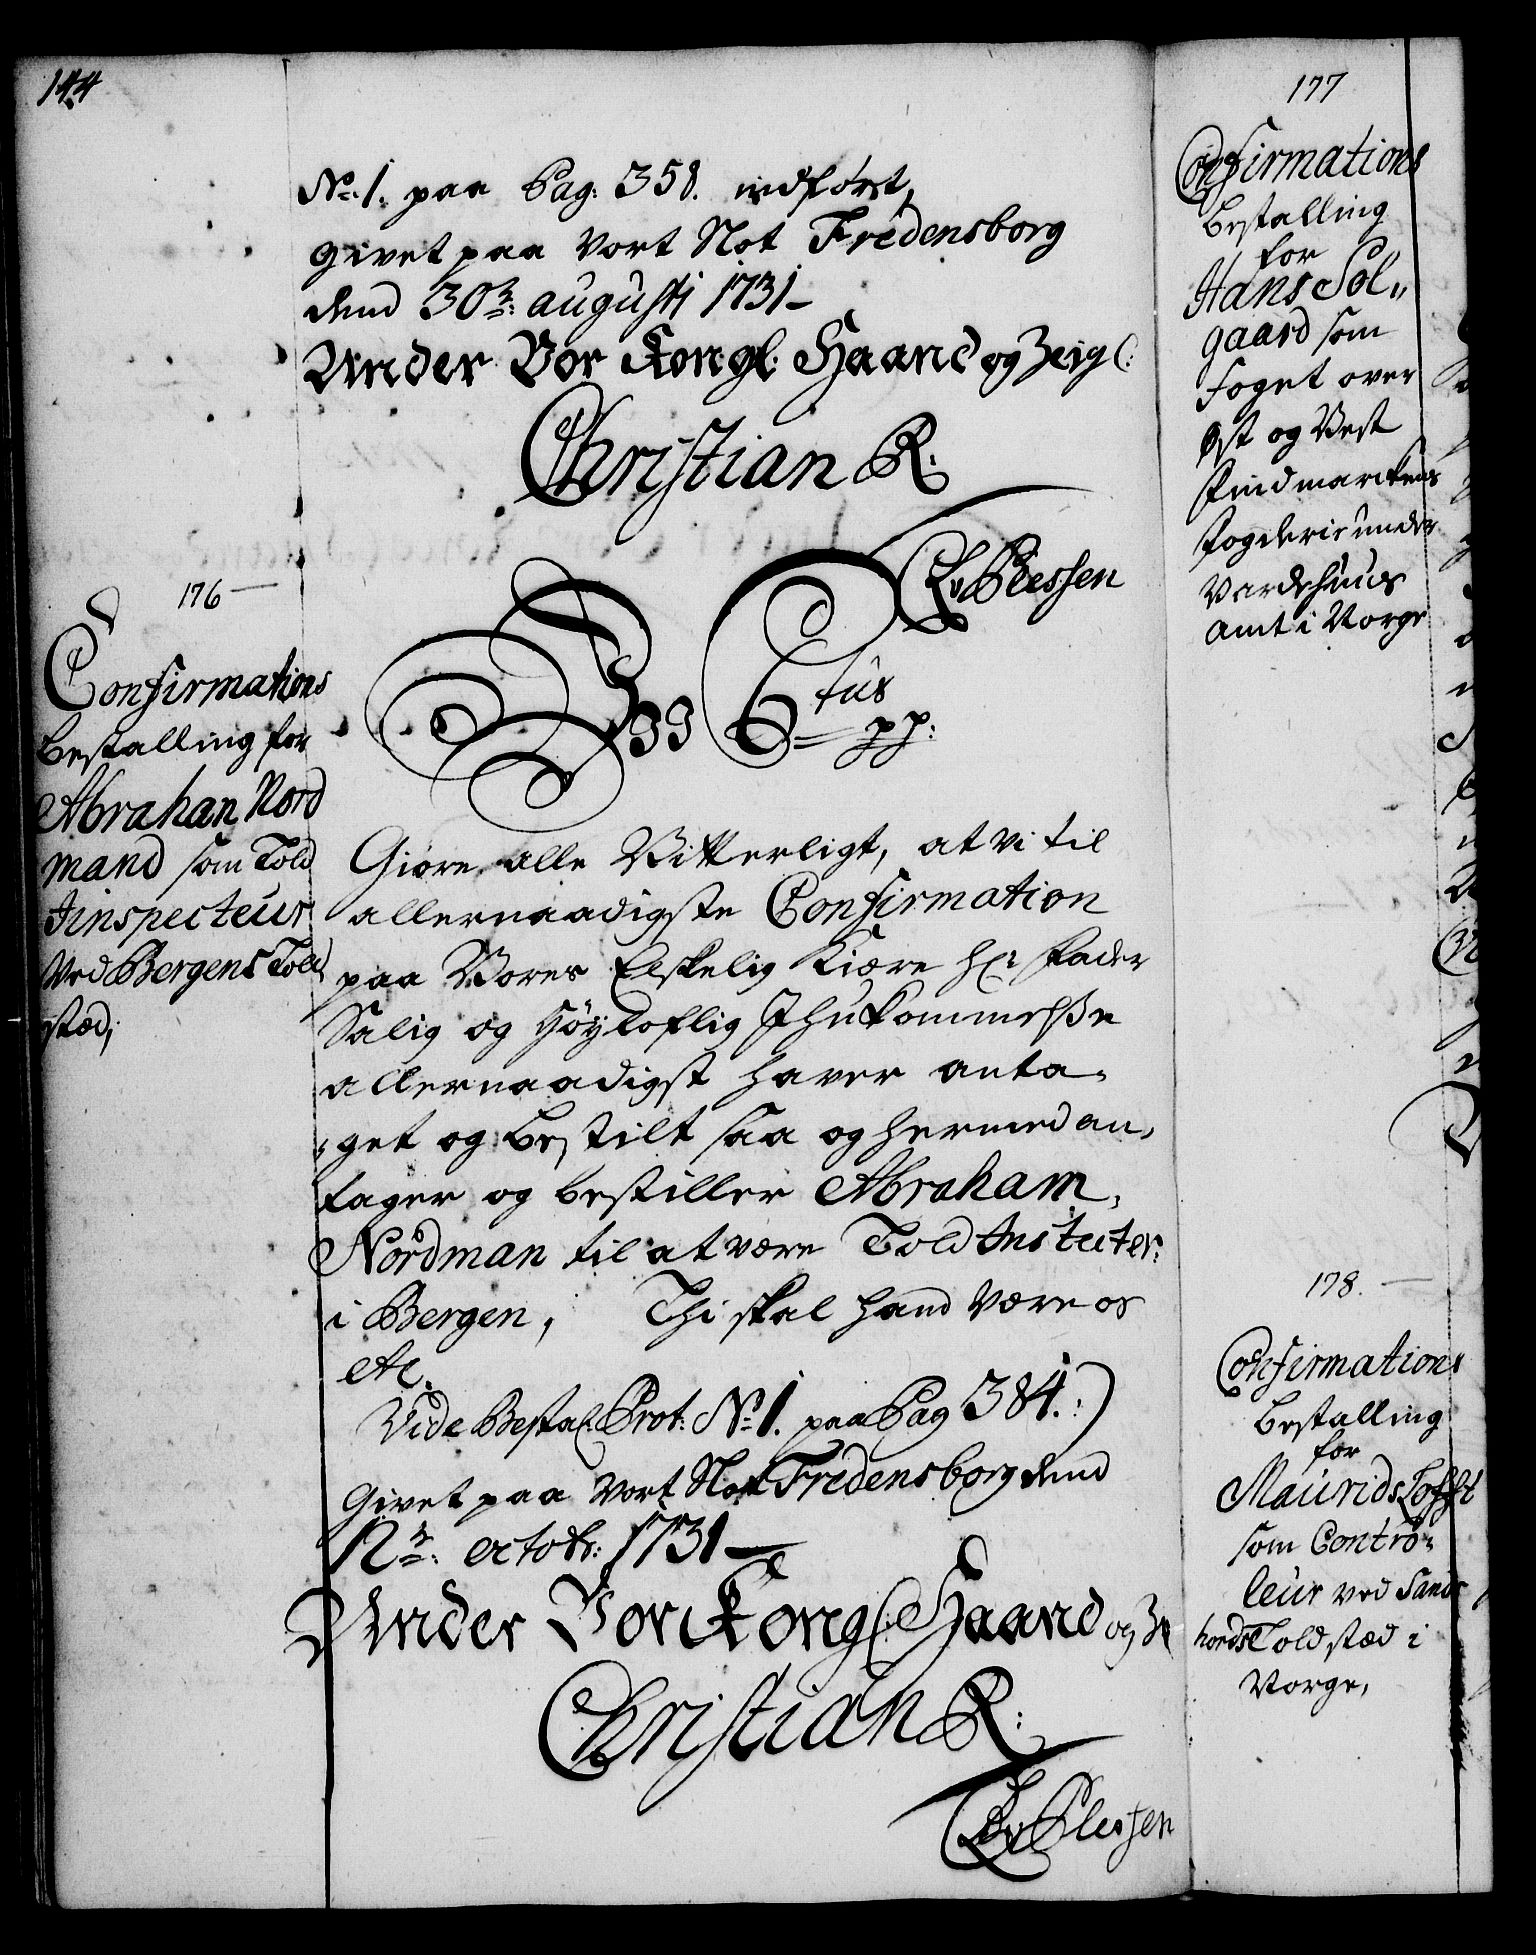 144
No. 1. paa Pag: 358. indført,
givet paa Vort Slot Fredensborg
dend 30te: augusti 1731
Under Vor Kongl. Haand og Zeigl:
Christian R:
CAv Plessen
176
Confirmations
bestalling for
Abrahan Nord
mand som Told
Jinspecteur
Ved Bergens Told
stæd,
Vi C6tus
pp:
Giøre alle Vitterligt, at vi til
allernaadigste Confirmation
paa Vores Elskelig Kiære Hr: Fader
Salig og Høyloflig Ihukommelse
allernaadigst haver anta-
get og bestilt saa og hermed an-
tager og bestiller Abraham
Nordman til at være Told Insteuter:
i Bergen, Thi skal hand Være os
etc.
Vide Bestal: Prot: No 1. paa Pag 384.:)
Givet paa Vort Slot Fredensborg dend
12te: octobr: 1731
Under Vor Kongl: Haand og Ze
Christian R:
CAv Plessen
177
Confirmations
bestalling
for
Hans Sol-
gaard som
Foget over
Øst og Vest
Findmarckens
Fogderie under
Vardehuus
Amt i Norge
178.
Confirmations
bestalling
for
Maurids Tofft
som Contro-
leur ved Sand
hords Toldstæd i
Norge,